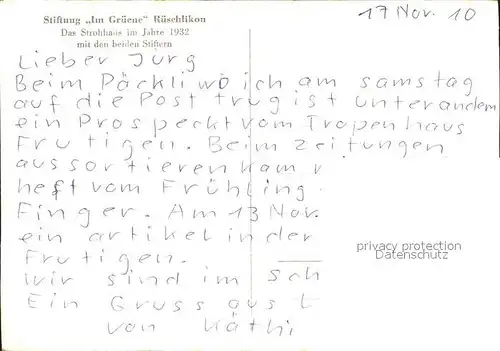 Stiftung „Im Grüene" Rüschlikon
Das Strohhaus im Jahre 1932
mit den beiden Stiftern
17 Nov. 10
Lieber Jürg
Beim Päckli wo ich am samstag
auf die Post trug ist unterandem
ein Prospeckt vom Tropenhaus
Frutigen. Beim zeitungen
aussortieren kam
heft vom Frühling
Finger. Am 13 Nov.
ein artikel in der
Frutigen.
privacy protection
Datenschutz
wir sind im Sch
Ein Gruss aus
von Käthi